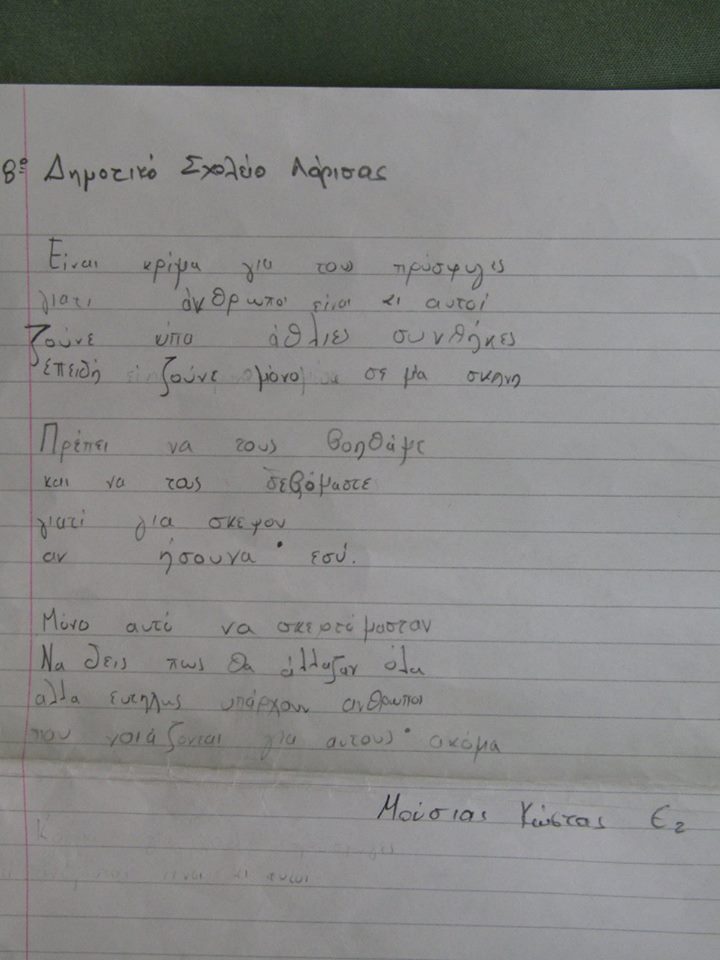 8ο Δημοτικό Σχολείο Λάρισας
Είναι κρίμα για τους πρόσφυγες
γιατι άνθρωποι είναι κι αυτοί
ζούνε υπο άθλιες συνθήκες
επειδή ζούνε μόνο σε μα σκηνη
Πρέπει να τους βοηθάμε
και να τους σεβόμαστε
γιατί για σκεψου
αν ήσουνα εσύ.
Μόνο αυτό να σκεφτόμασταν
Να δεις πως θα άλλαζαν όλα
αλλα ευτηχως υπάρχουν ανθρωποι
που νοιάζονται για αυτους ακόμα
Μούσιας Κώστας Ε2
είναι κι αυτοι